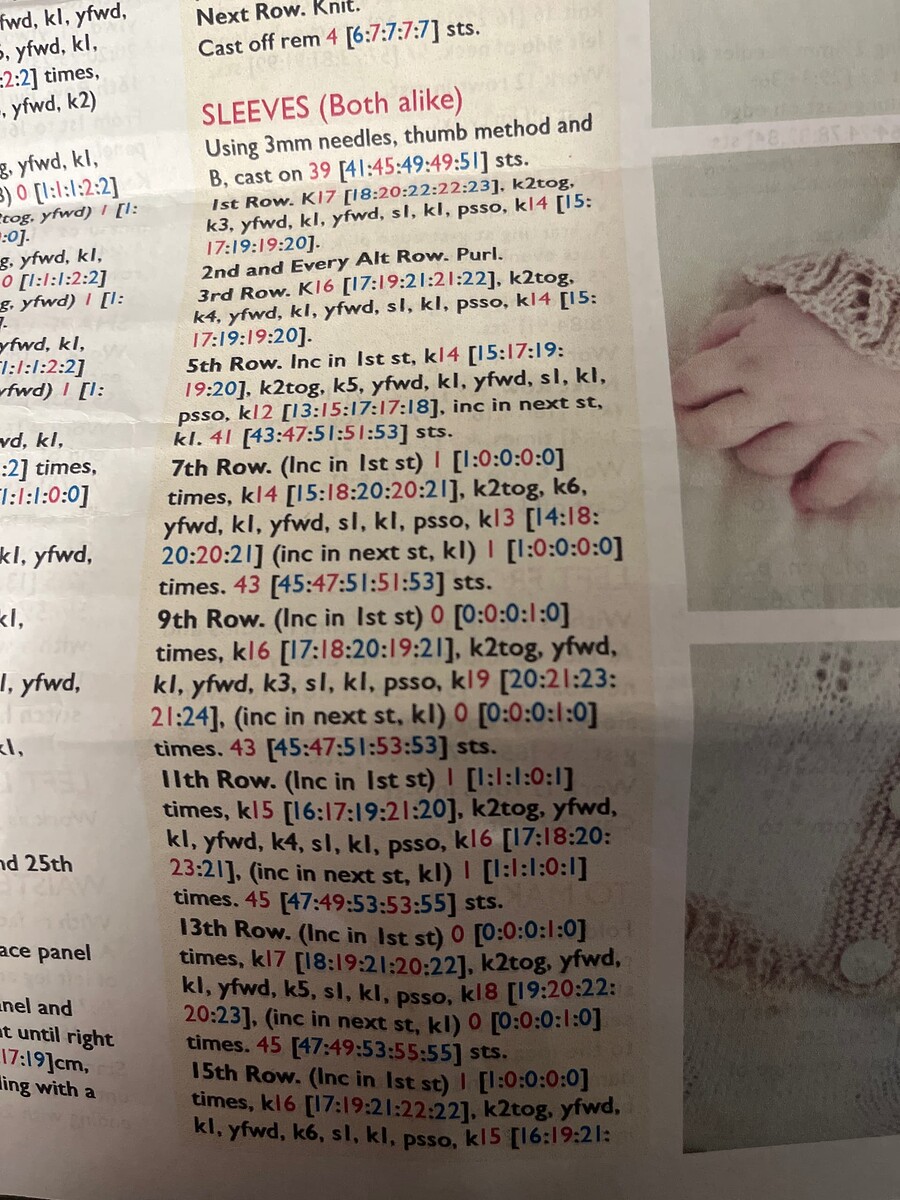 fwd, k1, yfwd,
yfwd, k1,
:2:2] times,
, yfwd, k2)
g, yfwd, k1,
0 [1:1:1:2:2]
tog, yfwd) 1 [1:
:0].
g, yfwd, k1,
0 [1:1:1:2:2]
g, yfwd) 1 [1:
yfwd, k1,
[1:1:1:2:2]
yfwd) 1 [1:
k1,
:2] times,
[1:1:1:0:0]
k1, yfwd,
k1,
yfwd,
k1,
25th
panel
and
until right
17:19]cm,
with a
Next Row. Knit.
Cast off rem 4 [6:7:7:7:7] sts.
SLEEVES (Both alike)
Using 3mm needles, thumb method and
B, cast on 39 [41:45:49:49:51] sts.
1st Row. K17 [18:20:22:22:23], k2tog,
k3, yfwd, k1, yfwd, s1, k1, psso, k14 [15:
17:19:19:20].
2nd and Every Alt Row. Purl.
3rd Row. K16 [17:19:21:21:22], k2tog,
k4, yfwd, k1, yfwd, s1, k1, psso, k14 [15:
17:19:19:20].
5th Row. Inc in 1st st, k14 [15:17:19:
19:20], k2tog, k5, yfwd, k1, yfwd, s1, k1,
psso, k12 [13:15:17:17:18], inc in next st,
k1. 41 [43:47:51:51:53] sts.
7th Row. (Inc in 1st st) 1 [1:0:0:0:0]
times, k14 [15:18:20:20:21], k2tog, k6,
yfwd, k1, yfwd, s1, k1, psso, k13 [14:18:
20:20:21] (inc in next st, k1) 1 [1:0:0:0:0]
times. 43 [45:47:51:51:53] sts.
9th Row. (Inc in 1st st) 0 [0:0:0:1:0]
times, k16 [17:18:20:19:21], k2tog, yfwd,
k1, yfwd, k3, s1, k1, psso, k19 [20:21:23:
21:24], (inc in next st, k1) 0 [0:0:0:1:0]
times. 43 [45:47:51:53:53] sts.
11th Row. (Inc in 1st st) 1 [1:1:1:0:1]
times, k15 [16:17:19:21:20], k2tog, yfwd,
k1, yfwd, k4, s1, k1, psso, k16 [17:18:20:
23:21], (inc in next st, k1) 1 [1:1:1:0:1]
times. 45 [47:49:53:53:55] sts.
13th Row. (Inc in 1st st) 0 [0:0:0:1:0]
times, k17 [18:19:21:20:22], k2tog, yfwd,
k1, yfwd, k5, s1, k1, psso, k18 [19:20:22:
20:23], (inc in next st, k1) 0 [0:0:0:1:0]
times. 45 [47:49:53:55:55] sts.
15th Row. (Inc in 1st st) 1 [1:0:0:0:0]
times, k16 [17:19:21:22:22], k2tog, yfwd,
k1, yfwd, k6, s1, k1, psso, k15 [16:19:21: